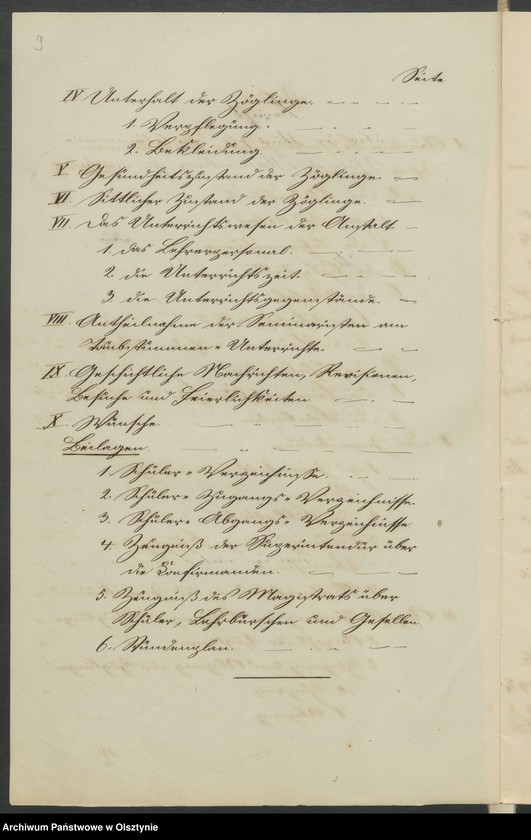 9
Seite
IV Unterhalt der Zöglinge.
1. Verpflegung.
2. Bekleidung.
V Gesundheitszustand der Zöglinge.
VI. Sittlicher Zustand der Zöglinge.
VII. Das Unterrichtswesen der Anstalt
1. das Lehrerpersonal.
2. die Unterrichtszeit.
3. die Unterrichtsgegenstände.
VIII. Antheilnahme der Seminaristen am
Taubstummen-Unterrichte.
IX. Geschichtliche Nachrichten, Revisionen,
Besuche und Feierlichkeiten
X. Wünsche.
Beilagen
1. Schüler-Verzeichnisse.
2. Schüler-Zugangs-Verzeichnisse.
3. Schüler-Abgangs-Verzeichnisse
4. Zeugniß der Superintendur über
die Confirmanden.
5. Zeugniß des Magistrats über
Schüler, Lehrburschen und Gesellen
6. Stundenplan.
Archiwum Państwowe w Olsztynie